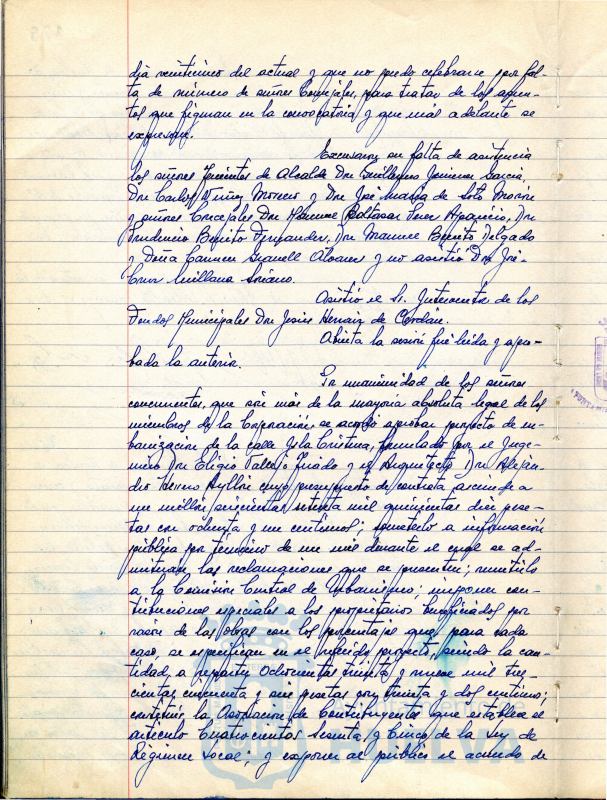 día veinticinco del actual y que no pudo celebrarse por fal-
ta de número de señores Concejales, para tratar de los asun-
tos que figuran en la convocatoria y que más adelante se
expresan.
Excusaron su falta de asistencia
los señores Tenientes de Alcalde Don Guillermo Jimenez García,
Don Carlos Núñez Moreno y Don José María de Soto Morón
y señores Concejales Don Manuel Baltasar Pérez Aparicio, Don
Prudencio Benito Fernández, Don Manuel Benito Delgado
y Doña Carmen Granell Alvarez y no asistió Don José-
Cruz Orellana Soriano.
Asistió el Sr. Interventor de los
Fondos Municipales Don Jesús Herraiz de Cerdán.
Abierta la sesión fué leida y apro-
bada la anterior.
Por unanimidad de los señores
concurrentes, que son más de la mayoría absoluta legal de los
miembros de la Corporación, se acordó aprobar proyecto de ur-
banización de la calle Isla Cristina, formulado por el Inge-
niero Don Eligio Vallejo Jurado y el Arquitecto Don Alejan-
dro Herrero Ayllón cuyo presupuesto de contrata asciende a
un millón seiscientas setenta mil quinientas diez pese-
tas con ochenta y un centimos; someterlo a información
pública por término de un mes durante el cual se ad-
mitiran las reclamaciones que se presenten; remitirlo
a la Comisión Central de Urbanismo; imponer con-
tribuciones especiales a los propietarios beneficiados por
razón de las obras con los porcentajes que, para cada
caso, se especifican en el referido proyecto, siendo la can-
tidad a repartir ochocientas treinta y nueve mil tres-
cientas cincuenta y seis pesetas con treinta y dos centimos;
constituir la Asociación de Contribuyentes que establece el
artículo Cuatrocientos sesenta y Cinco de la Ley de
Régimen Local; y exponer al público el acuerdo de
Ayuntamiento de
HUELVA